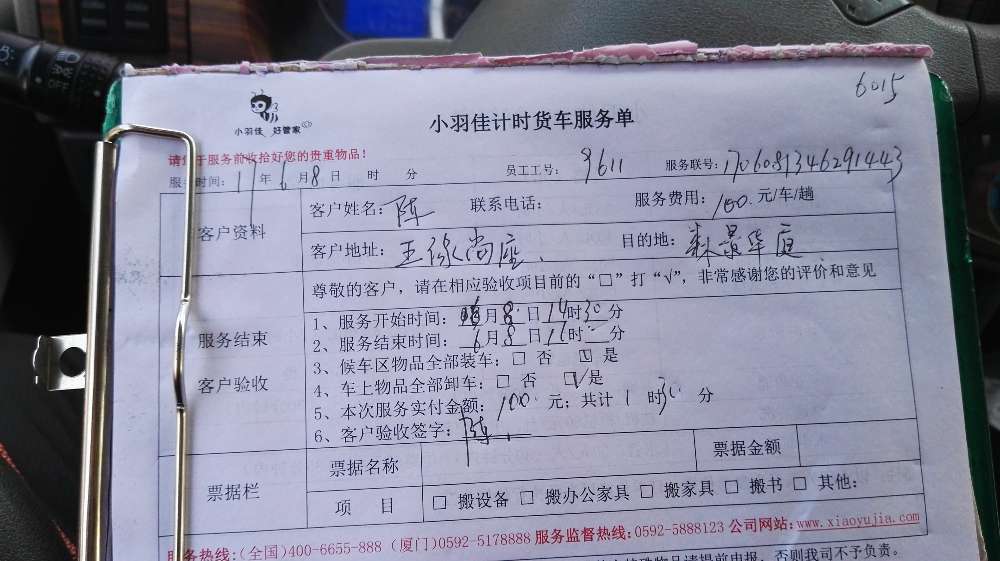 6015
小羽佳 好管家
小羽佳计时货车服务单
请您于服务前收拾好您的贵重物品!
服务时间: 17年6月8日 时 分 员工工号: 9611 服务联号: 1706081346291443
客户资料
客户姓名: 陈 联系电话: 服务费用: 100.元/车/趟
客户地址: 王徐尚座. 目的地: 森景华庭
服务结束
客户验收
尊敬的客户,请在相应验收项目前的“□”打“√”,非常感谢您的评价和意见
1、服务开始时间: 6月8日14时30分
2、服务结束时间: 6月8日16时 分
3、候车区物品全部装车: □ 否 ☑ 是
4、车上物品全部卸车: □ 否 ☑ 是
5、本次服务实付金额: 100.元; 共计 1 时30分
6、客户验收签字: 陈.
票据栏
票据名称 票据金额
项 目 □ 搬设备 □ 搬办公家具 □ 搬家具 □ 搬书 □ 其他:
服务热线:(全国)400-6655-888 (厦门)0592-5178888 服务监督热线:0592-5888123 公司网站:www.xiaoyujia.com
物品请提前申报,否则我司不予负责。